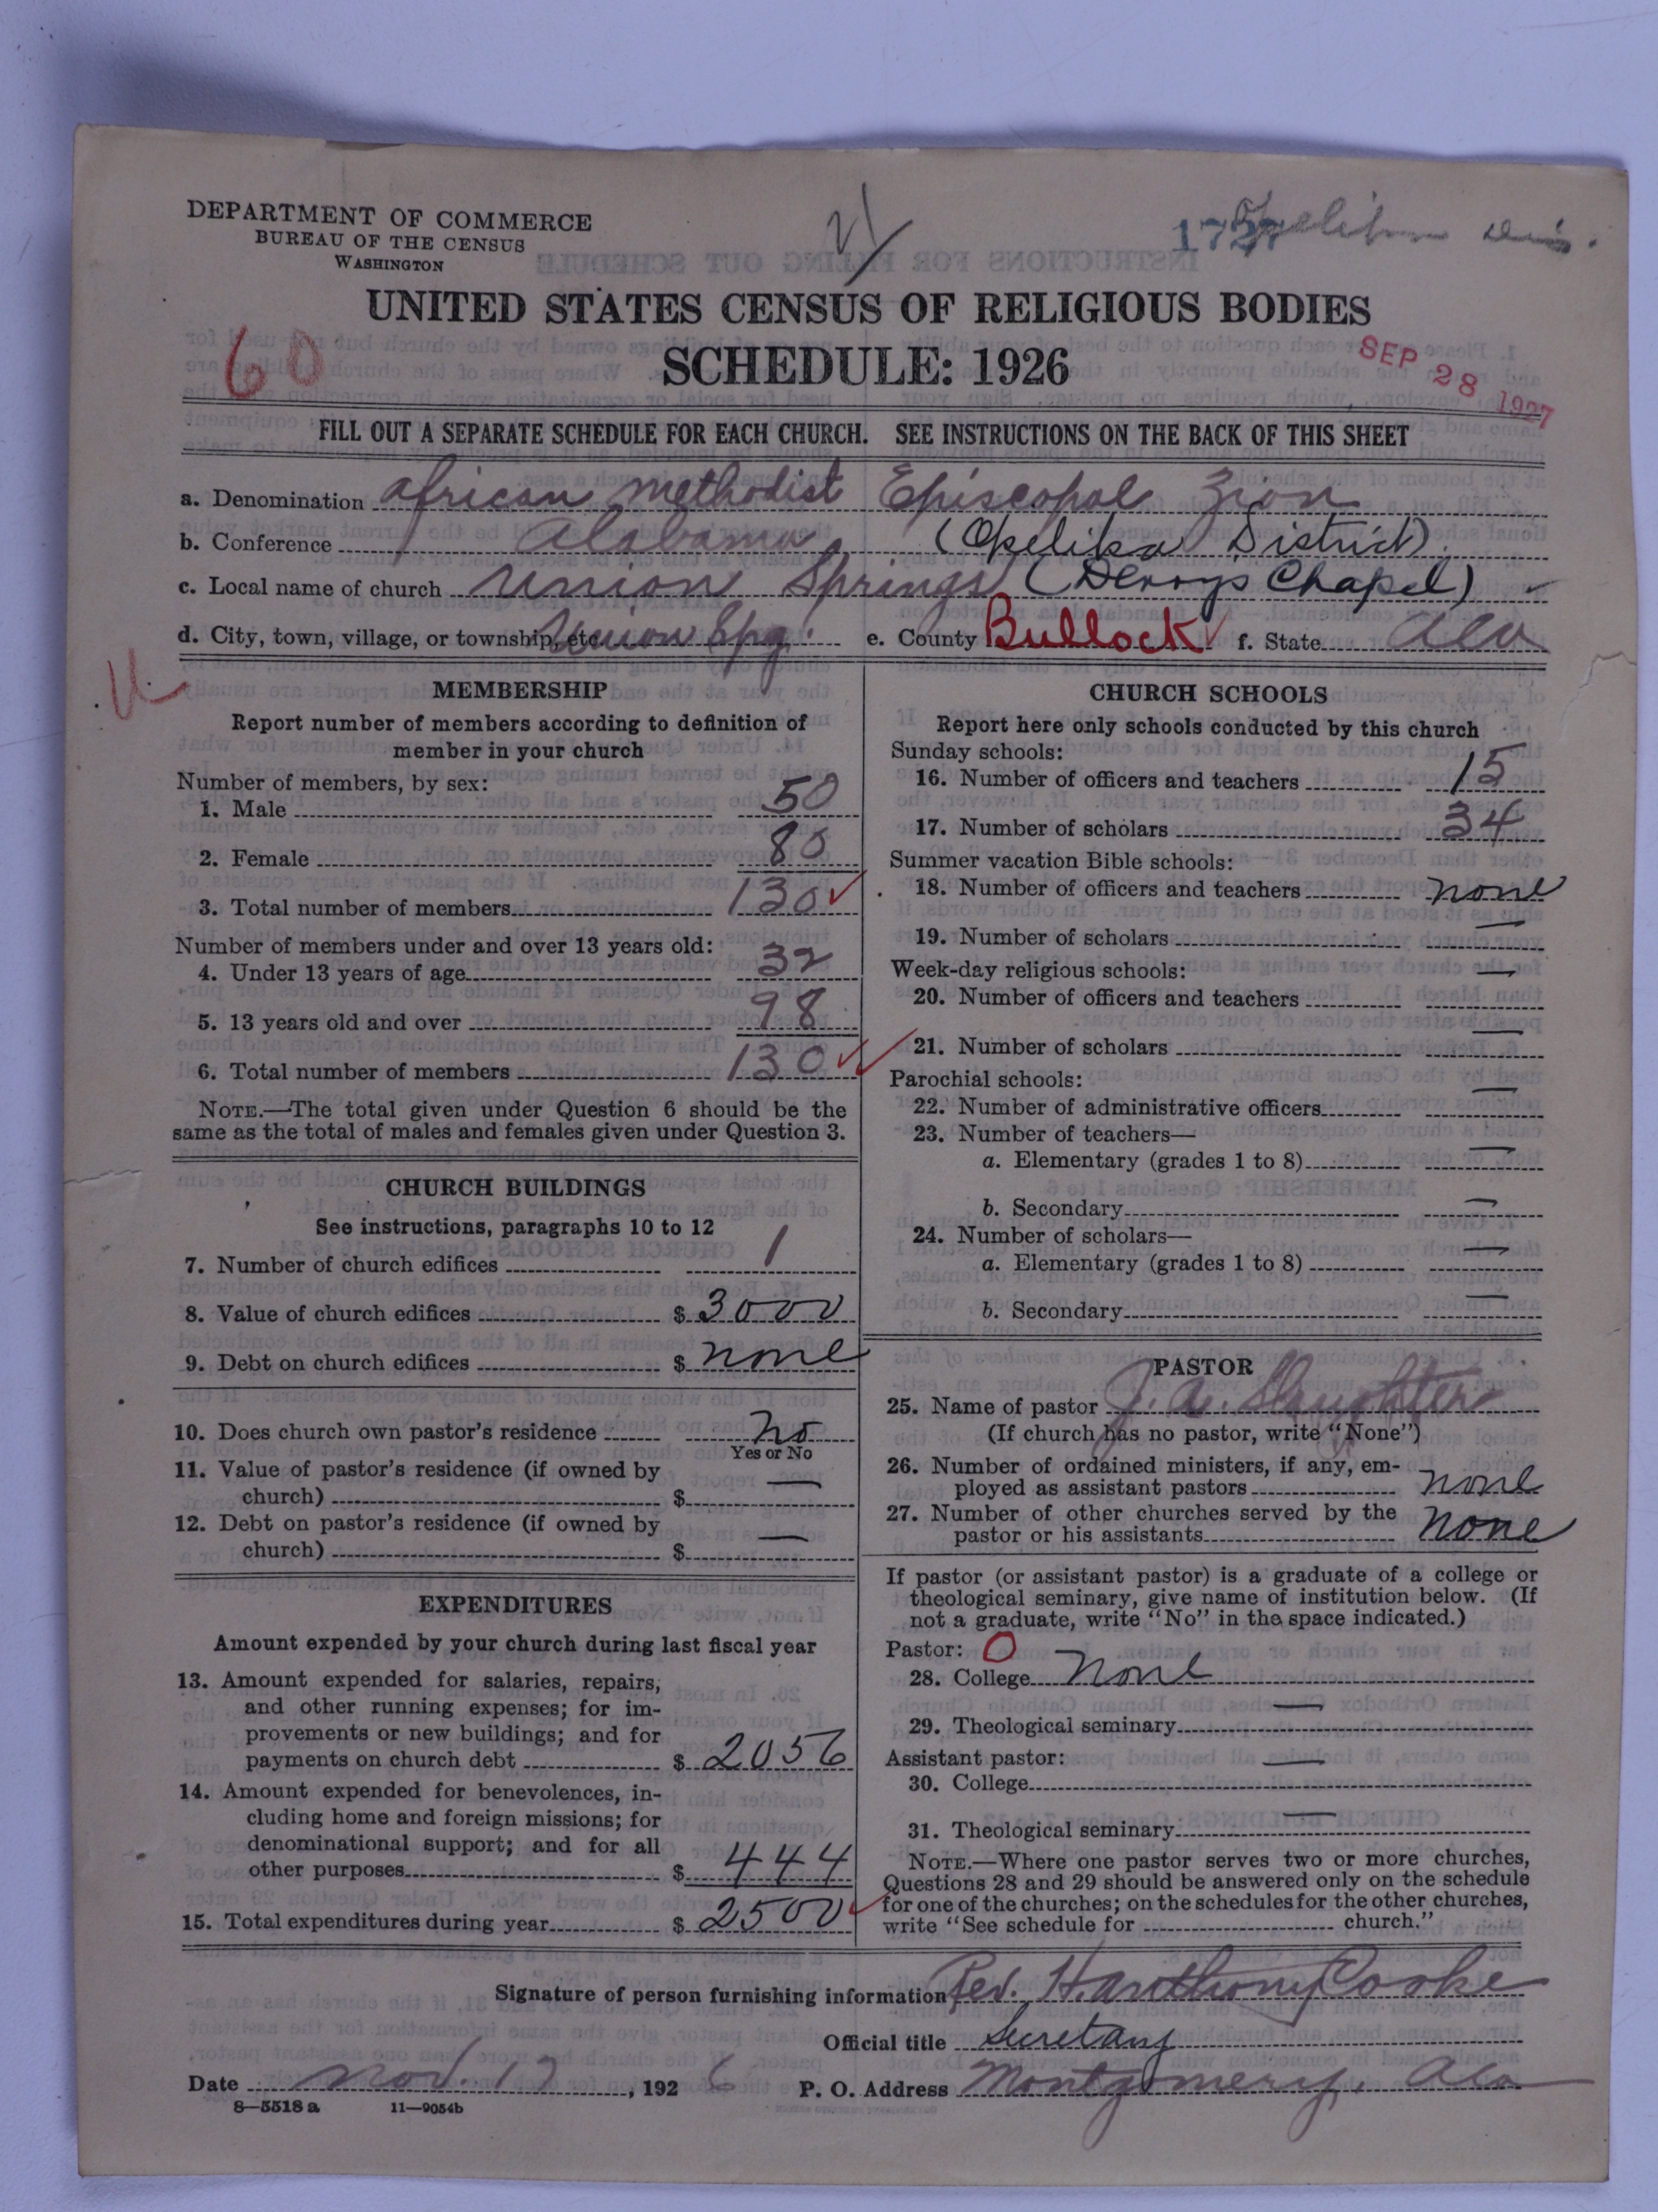 DEPARTMENT OF COMMERCE
BUREAU OF THE CENSUS
WASHINGTON
1727 Opelika Dis.
UNITED STATES CENSUS OF RELIGIOUS BODIES
60
SCHEDULE: 1926
SEP 28 1927
FILL OUT A SEPARATE SCHEDULE FOR EACH CHURCH. SEE INSTRUCTIONS ON THE BACK OF THIS SHEET
a. Denomination African Methodist Episcopal Zion
b. Conference Alabama (Opelika District)
c. Local name of church Union Springs ( Chapel)
d. City, town, village, or township, etc. Union Spg. e. County Bullock f. State Ala
MEMBERSHIP
Report number of members according to definition of
member in your church
Number of members, by sex:
1. Male 50
2. Female 80
3. Total number of members 130
Number of members under and over 13 years old:
4. Under 13 years of age 32
5. 13 years old and over 98
6. Total number of members 130
NOTE.—The total given under Question 6 should be the
same as the total of males and females given under Question 3.
CHURCH BUILDINGS
See instructions, paragraphs 10 to 12
7. Number of church edifices 1
8. Value of church edifices $ 3000
9. Debt on church edifices $ none
10. Does church own pastor's residence No
Yes or No
11. Value of pastor's residence (if owned by
church) $ —
12. Debt on pastor's residence (if owned by
church) $ —
EXPENDITURES
Amount expended by your church during last fiscal year
13. Amount expended for salaries, repairs,
and other running expenses; for im-
provements or new buildings; and for
payments on church debt $ 2056
14. Amount expended for benevolences, in-
cluding home and foreign missions; for
denominational support; and for all
other purposes $ 444
15. Total expenditures during year $ 2500
CHURCH SCHOOLS
Report here only schools conducted by this church
Sunday schools:
16. Number of officers and teachers 15
17. Number of scholars 34
Summer vacation Bible schools:
18. Number of officers and teachers none
19. Number of scholars —
Week-day religious schools:
20. Number of officers and teachers —
21. Number of scholars —
Parochial schools:
22. Number of administrative officers —
23. Number of teachers—
a. Elementary (grades 1 to 8) —
b. Secondary —
24. Number of scholars—
a. Elementary (grades 1 to 8) —
b. Secondary —
PASTOR
25. Name of pastor J. A. Slaughter
(If church has no pastor, write "None")
26. Number of ordained ministers, if any, em-
ployed as assistant pastors none
27. Number of other churches served by the
pastor or his assistants none
If pastor (or assistant pastor) is a graduate of a college or
theological seminary, give name of institution below. (If
not a graduate, write "No" in the space indicated.)
Pastor: O
28. College none
29. Theological seminary —
Assistant pastor:
30. College —
31. Theological seminary —
NOTE.—Where one pastor serves two or more churches,
Questions 28 and 29 should be answered only on the schedule
for one of the churches; on the schedules for the other churches,
write "See schedule for church."
Signature of person furnishing information Rev. H. Anthony Cooke
Official title Secretary
Date Nov. 17, 1926 P. O. Address Montgomery, Ala
8—5518 a 11—9054b